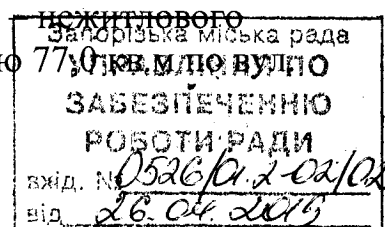 нежитлового
Запорізька міська рада
ю 77,0 кв.м по вул.
УПРАВЛІННЯ ПО
ЗАБЕЗПЕЧЕННЮ
РОБОТИ РАДИ
вхід. № 0526/01.2-02/02
від 26.04.2019